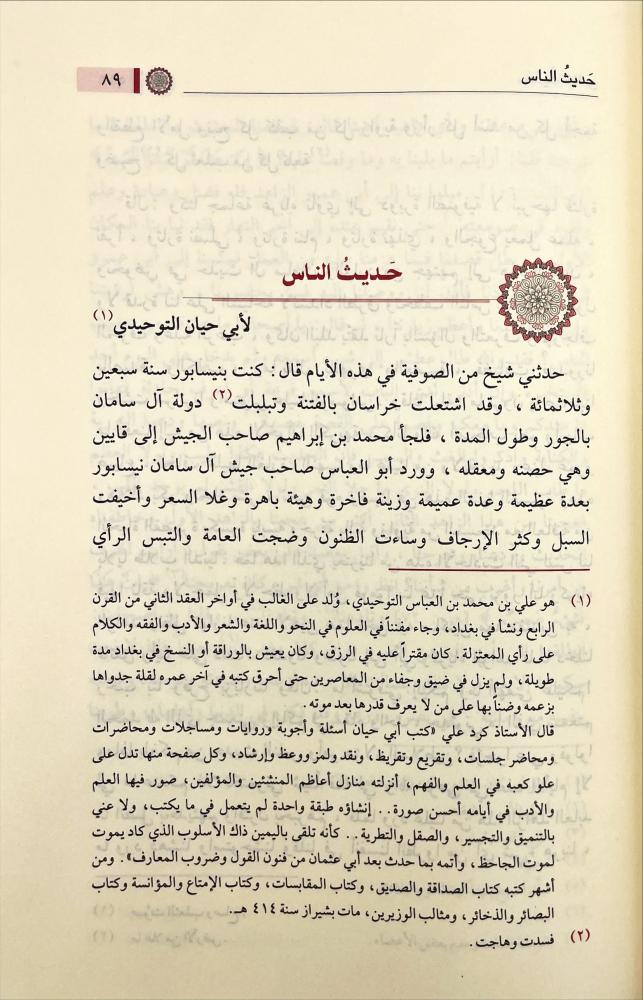 حَديثُ الناس
٨٩
حَديثُ الناس
لأبي حيان التوحيدي(١)
حدثني شيخ من الصوفية في هذه الأيام قال: كنت بنيسابور سنة سبعين
وثلاثمائة ، وقد اشتعلت خراسان بالفتنة وتبلبلت(٢) دولة آل سامان
بالجور وطول المدة ، فلجأ محمد بن إبراهيم صاحب الجيش إلى قايين
وهي حصنه ومعقله ، وورد أبو العباس صاحب جيش آل سامان نيسابور
بعدة عظيمة وعدة عميمة وزينة فاخرة وهيئة باهرة وغلا السعر وأخيفت
السبل وكثر الإرجاف وساءت الظنون وضجت العامة والتبس الرأي
(١) هو علي بن محمد بن العباس التوحيدي، وُلد على الغالب في أواخر العقد الثاني من القرن
الرابع ونشأ في بغداد، وجاء مفنناً في العلوم في النحو واللغة والشعر والأدب والفقه والكلام
على رأي المعتزلة. كان مقتراً عليه في الرزق، وكان يعيش بالوراقة أو النسخ في بغداد مدة
طويلة، ولم يزل في ضيق وجفاء من المعاصرين حتى أحرق كتبه في آخر عمره لقلة جدواها
بزعمه وضناً بها على من لا يعرف قدرها بعد موته.
قال الأستاذ كرد علي «كتب أبي حيان أسئلة وأجوبة وروايات ومساجلات ومحاضرات
ومحاضر جلسات، وتقريع وتقريظ، ونقد ولمز ووعظ وإرشاد، وكل صفحة منها تدل على
علو كعبه في العلم والفهم، أنزلته منازل أعاظم المنشئين والمؤلفين، صور فيها العلم
والأدب في أيامه أحسن صورة.. إنشاؤه طبقة واحدة لم يتعمل في ما يكتب، ولا عني
بالتنميق والتجسير، والصقل والتطرية.. كأنه تلقى باليمين ذاك الأسلوب الذي كاد يموت
لموت الجاحظ، وأتمه بما حدث بعد أبي عثمان من فنون القول وضروب المعارف». ومن
أشهر كتبه كتاب الصداقة والصديق، وكتاب المقابسات، وكتاب الإمتاع والمؤانسة وكتاب
البصائر والذخائر، ومثالب الوزيرين، مات بشيراز سنة ٤١٤ هـ.
(٢) فسدت وهاجت.